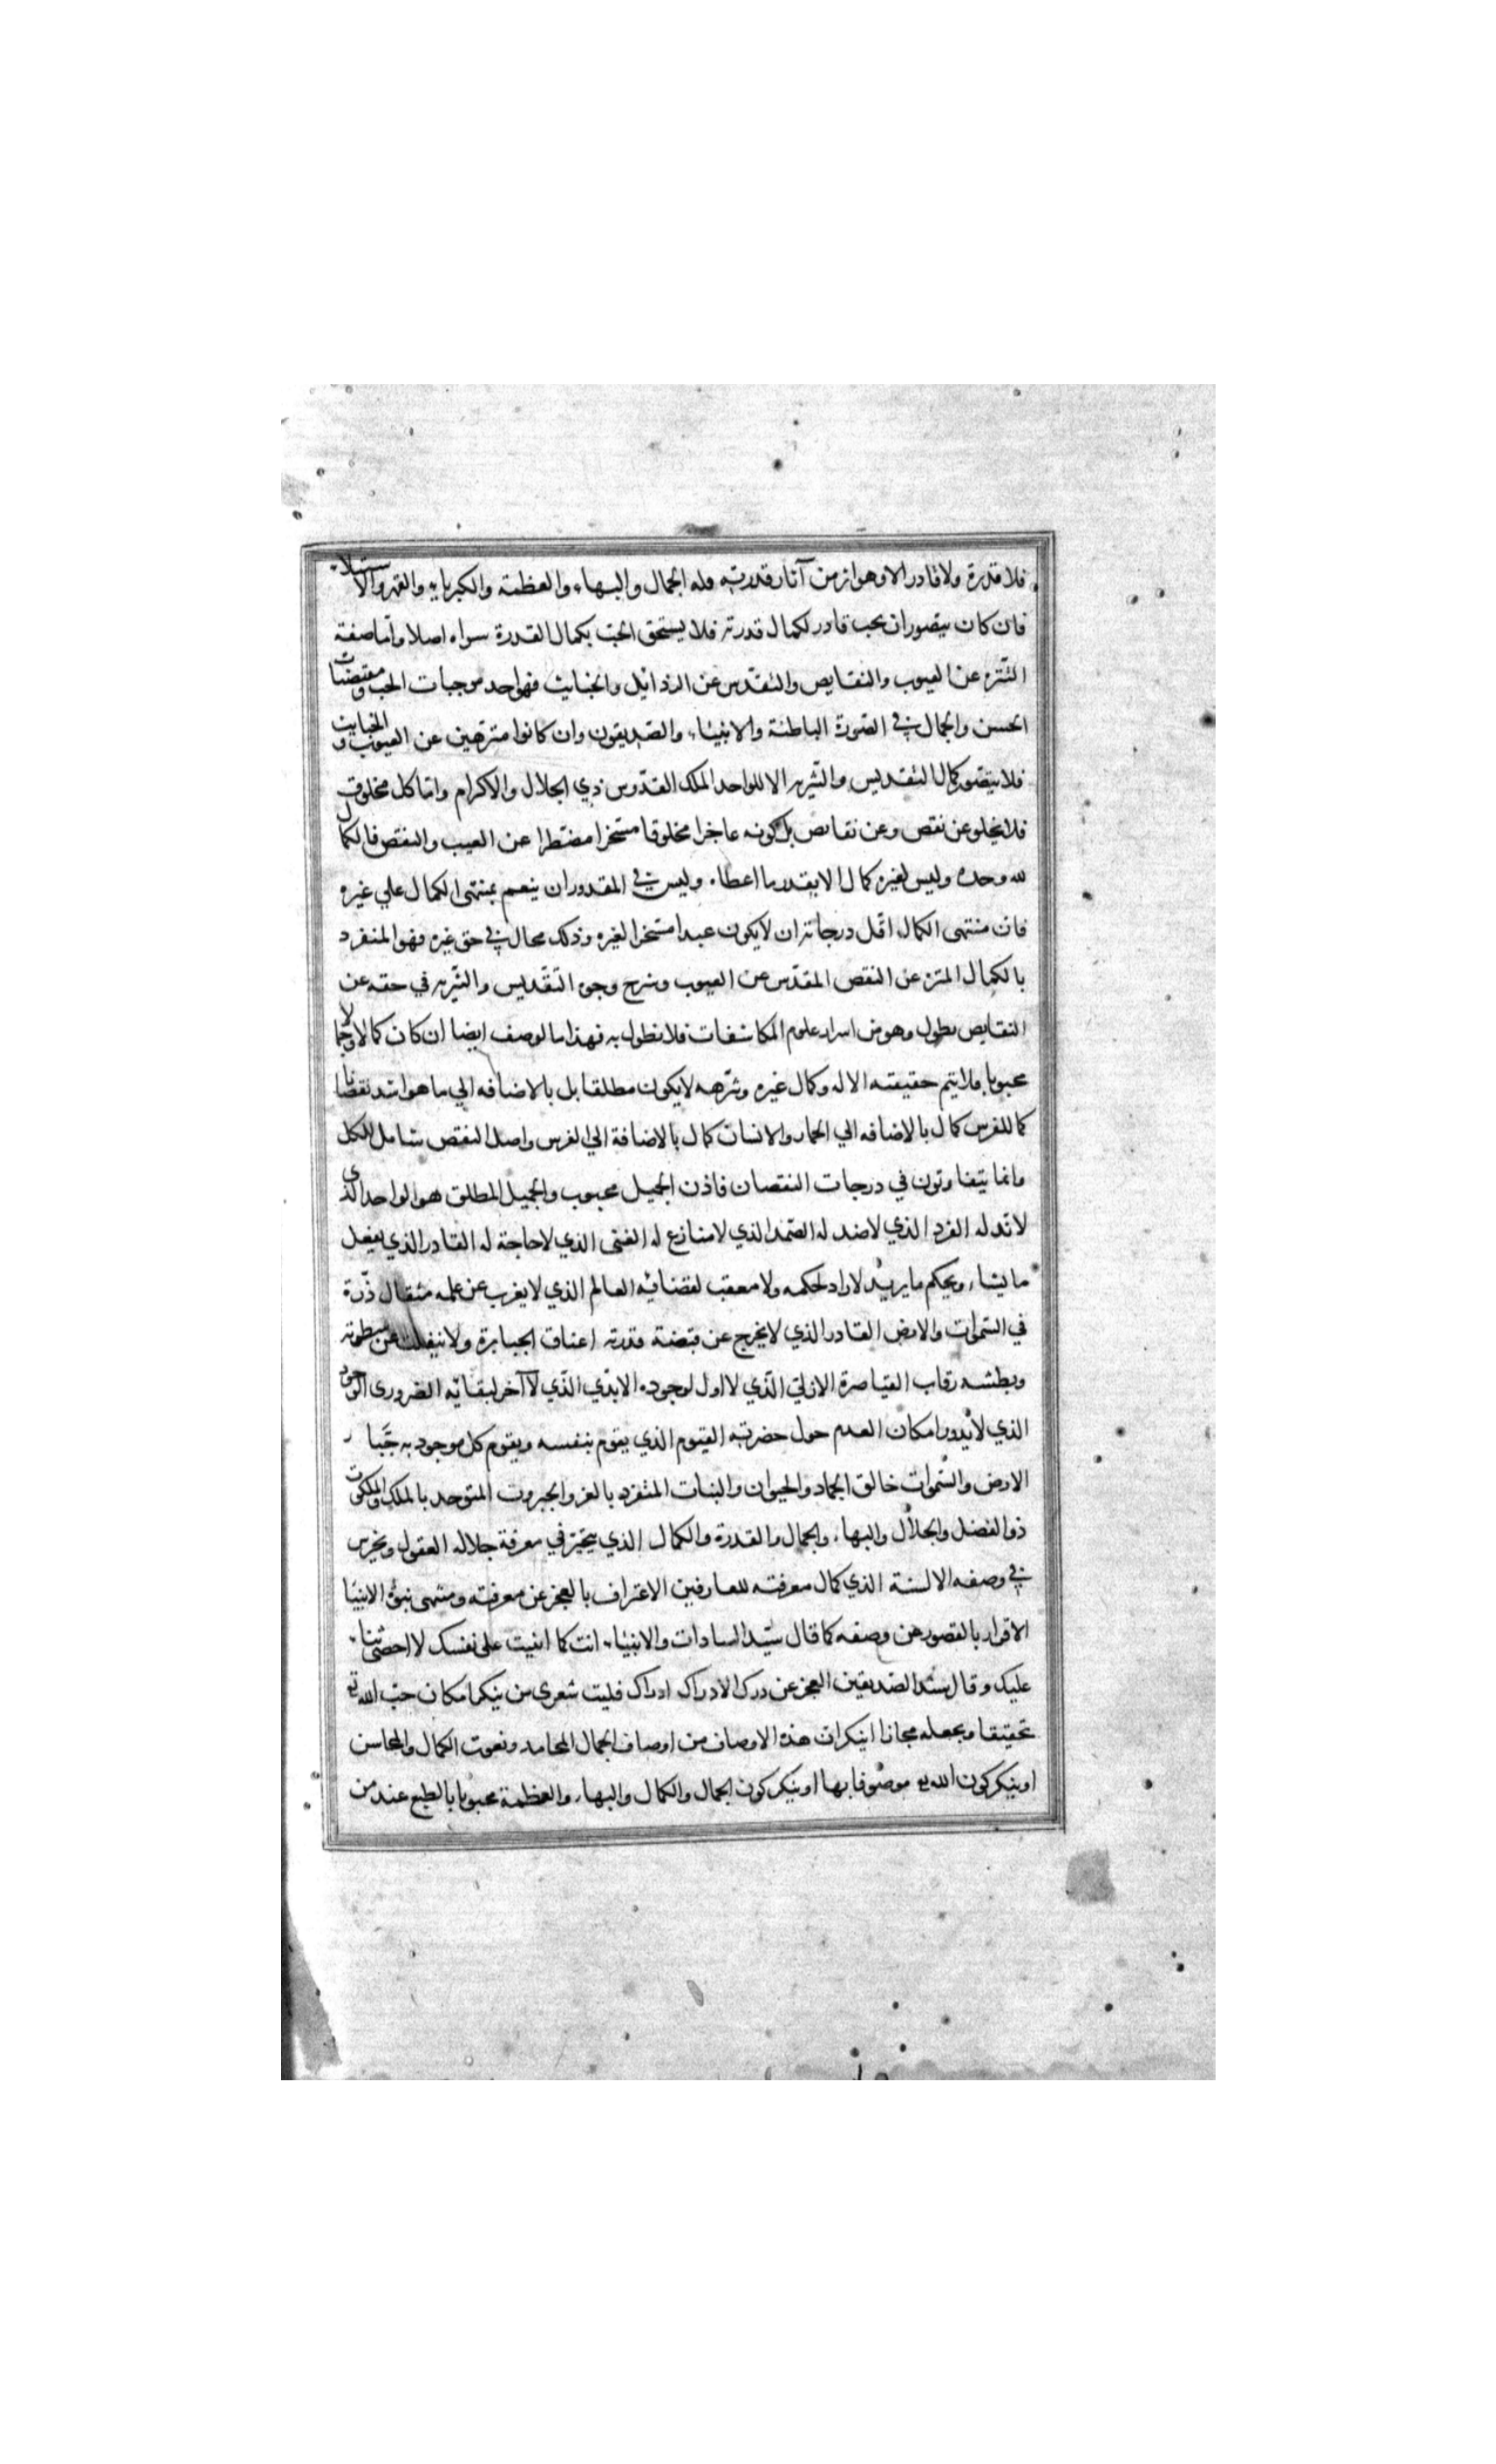 فلا قدرة ولا قادر الا وهو اثر من آثار قدرته وله الجمال والبهاء والعظمة والكبرياء والقهر والاستيلاء
فان كان يتصور ان يحب قادر لكمال قدرته فلا يستحق الحب بكمال القدرة سواه اصلا واما صفة
التنزه عن العيوب والنقايص والتقدس عن الرذائل والخبايث فهو احد موجبات الحب ومقتضيات
الحسن والجمال في الصورة الباطنة والانبياء والصديقون وان كانوا منزهين عن العيوب والخبايث
فلا يتصور كمال التقديس والتنزيه الا للواحد الملك القدوس ذي الجلال والاكرام واما كل مخلوق
فلا يخلو عن نقص وعن نقايص بل كونه عاجزا مخلوقا مسخرا مضطرا عن العيب والنقص فالكمال
لله وحده وليس لغيره كمال الا بقدر ما اعطاه وليس في المقدور ان ينعم بمنتهى الكمال علي غيره
فان منتهى الكمال اقل درجاته ان لا يكون عبدا مسخرا لغيره وذلك محال في حق غيره فهو المنفرد
بالكمال المنزه عن النقص المقدس عن العيوب وشرح وجوه التقديس والتنزيه في حقه عن
النقايص يطول وهو من اسرار علوم المكاشفات فلا نطول به فهذا الوصف ايضا ان كان كمالا وجمالا
محبوبا فلا يتم حقيقته الا له وكمال غيره وتنزهه لا يكون مطلقا بل بالاضافه الي ما هو اشد نقصانا
كما للفرس كمال بالاضافه الي الحمار والانسان كمال بالاضافة الي الفرس واصل النقص شامل للكل
وانما يتفاوتون في درجات النقصان فاذن الجميل محبوب والجميل المطلق هو الواحد الذي
لا ند له الفرد الذي لا ضد له الصمد الذي لا منازع له الغني الذي لا حاجة له القادر الذي يفعل
ما يشاء ويحكم ما يريد لا راد لحكمه ولا معقب لقضائه العالم الذي لا يعزب عن علمه مثقال ذرة
في السموات والارض القادر الذي لا يخرج عن قبضة قدرته اعناق الجبابرة ولا ينفلت عن سطوته
وبطشه رقاب القياصرة الازلي الذي لا اول لوجوده الابدي الذي لا آخر لبقائه الضروري الوجود
الذي لا يدور امكان العدم حول حضرته القيوم الذي يقوم بنفسه ويقوم كل موجود به جبار
الارض والسموات خالق الجماد والحيوان والنبات المنفرد بالعز والجبروت المتوحد بالملك والملكوت
ذو الفضل والجلال والبهاء والجمال والقدرة والكمال الذي يتحير في معرفة جلاله العقول ويخرس
في وصفه الالسنة الذي كمال معرفته للعارفين الاعتراف بالعجز عن معرفته ومنتهى نبوة الانبياء
الاقرار بالقصور عن وصفه كما قال سيد السادات والانبياء انت كما اثنيت على نفسك لا احصى ثناء
عليك وقال سيد الصديقين العجز عن درك الادراك ادراك فليت شعرى من ينكر امكان حب الله تع
تحقيقا ويجعله مجازا اينكر ان هذه الاوصاف من اوصاف الجمال المحامد ونعوت الكمال والمحاسن
او ينكر كون الله تع موصوفا بها او ينكر كون الجمال والكمال والبهاء والعظمة محبوبا بالطبع عند من